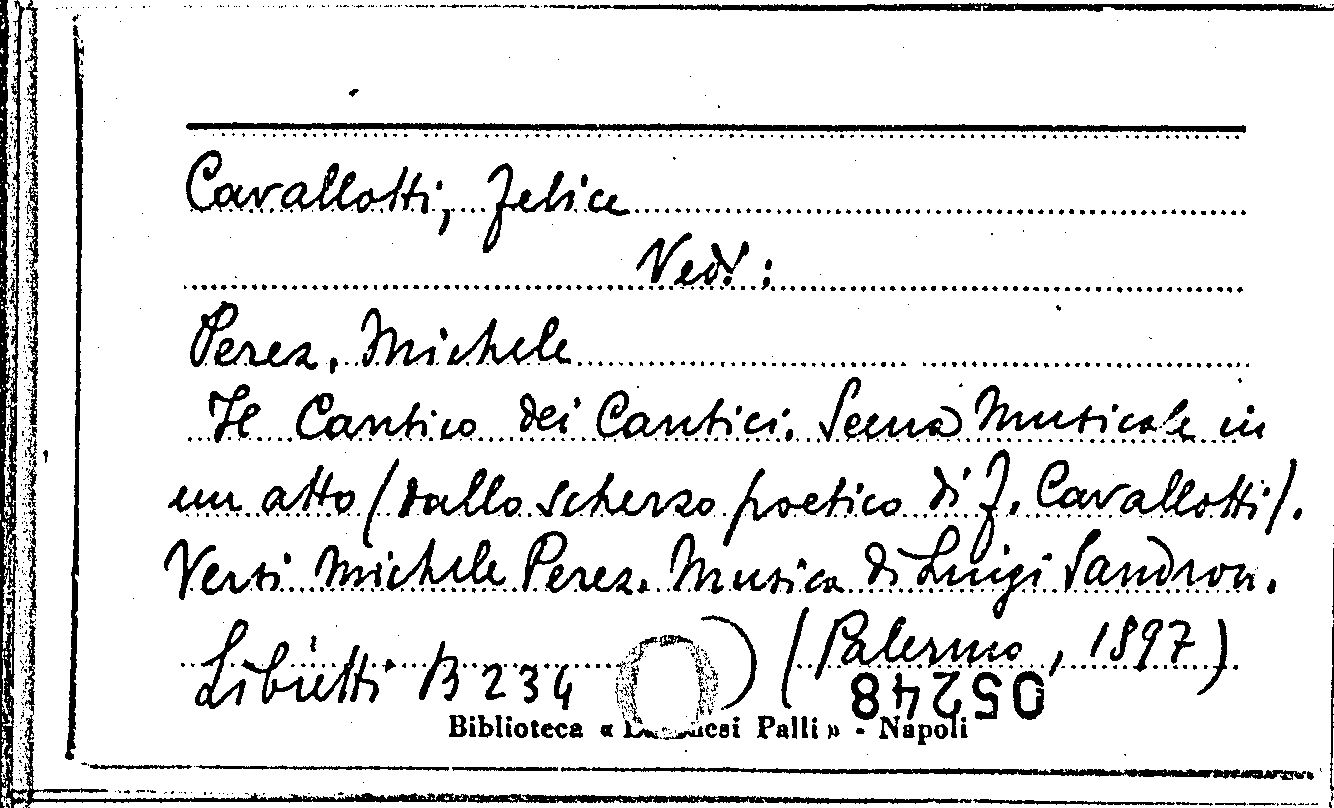 Cavallotti, Felice
Ved! :
Perez, Michele
Il Cantico dei Cantici. Scena Musicale in
un atto (dallo scherzo poetico di F. Cavallotti).
Versi Michele Perez. Musica di Luigi Sandron.
Libretti B 234 ) (Palermo, 1897)
05248
Biblioteca « Palli » - Napoli